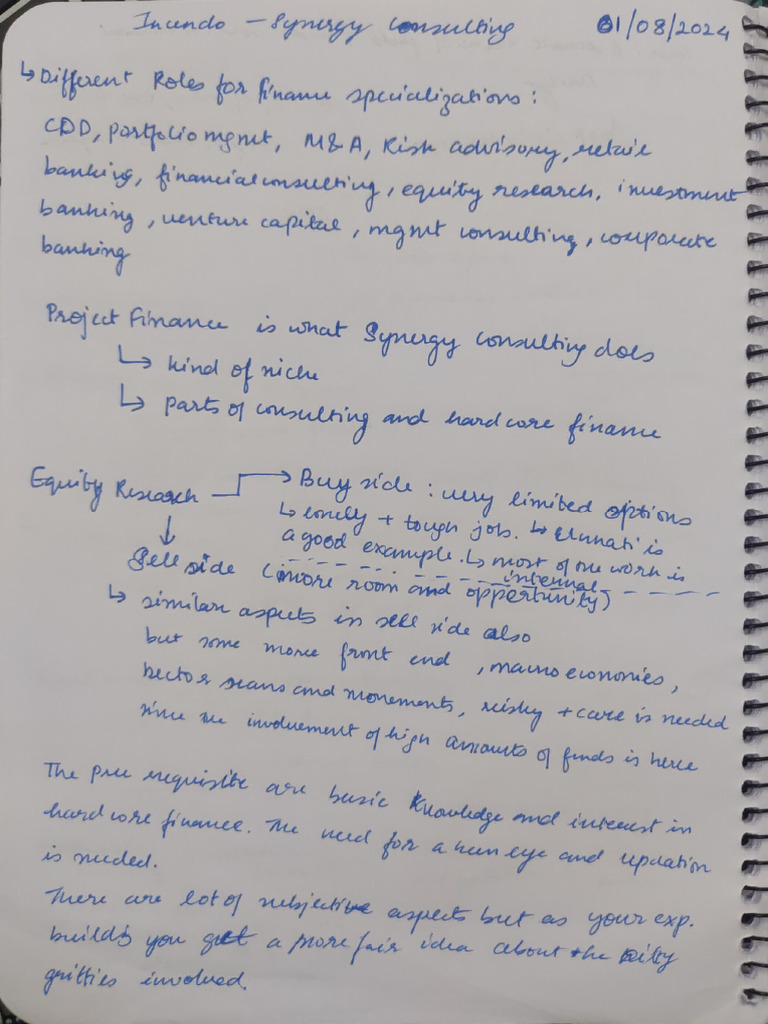 Incendo - Synergy Consulting 01/08/2024
↳ Different Roles for finance specializations :
CDD, portfolio mgmt, M&A, Risk advisory, retail
banking, financial consulting, equity research, investment
banking, venture capital, mgmt consulting, corporate
banking
Project Finance is what Synergy Consulting does
↳ kind of niche
↳ parts of consulting and hardcore finance
Equity Research → Buy side : very limited options
↳ lonely + tough job. ↳ is
a good example. ↳ most of the work is
internal
↓
Sell side (more room and opportunity)
↳ similar aspects in sell side also
but some more front end, macroeconomics,
sector and movements, risky + care is needed
since the involvement of high amounts of funds is here
The pre requisite are basic knowledge and interest in
hardcore finance. The need for a keen eye and updation
is needed.
There are lot of subjective aspects but as your exp.
builds you get a more fair idea about the nitty
gritties involved.